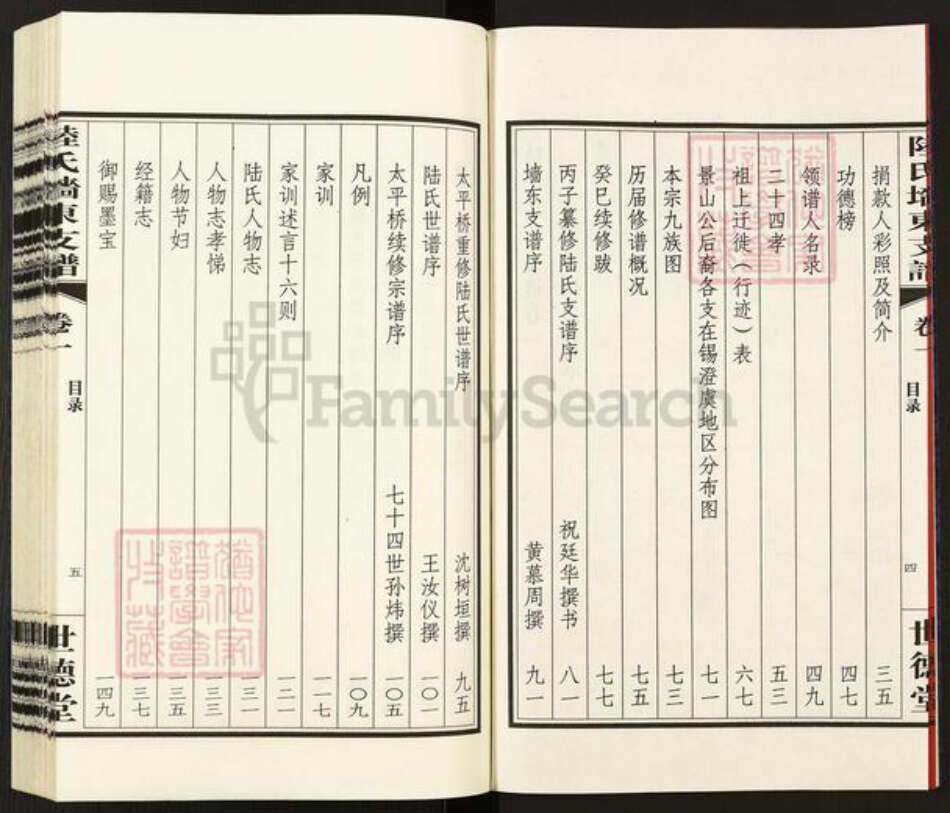 陆氏墙东支谱 卷一 目录 四 世德堂
捐款人彩照及简介 三五
功德榜 四七
领谱人名录 四九
二十四孝 五三
祖上迁徙（行迹）表 六七
景山公后裔各支在锡澄虞地区分布图 七一
本宗九族图 七三
历届修谱概况 七五
癸巳续修跋 七七
丙子纂修陆氏支谱序 祝廷华撰书 八一
墙东支谱序 黄慕周撰 九一
太平桥重修陆氏世谱序 沈树垣撰 九五
陆氏世谱序 王汝仪撰 一〇一
太平桥续修宗谱序 七十四世孙炜撰 一〇五
凡例 一〇九
家训 一一七
家训述言十六则 一二一
陆氏人物志 一三一
人物志孝悌 一三三
人物节妇 一三五
经籍志 一三七
御赐墨宝 一四九
陆氏墙东支谱 卷一 目录 五 世德堂
FamilySearch